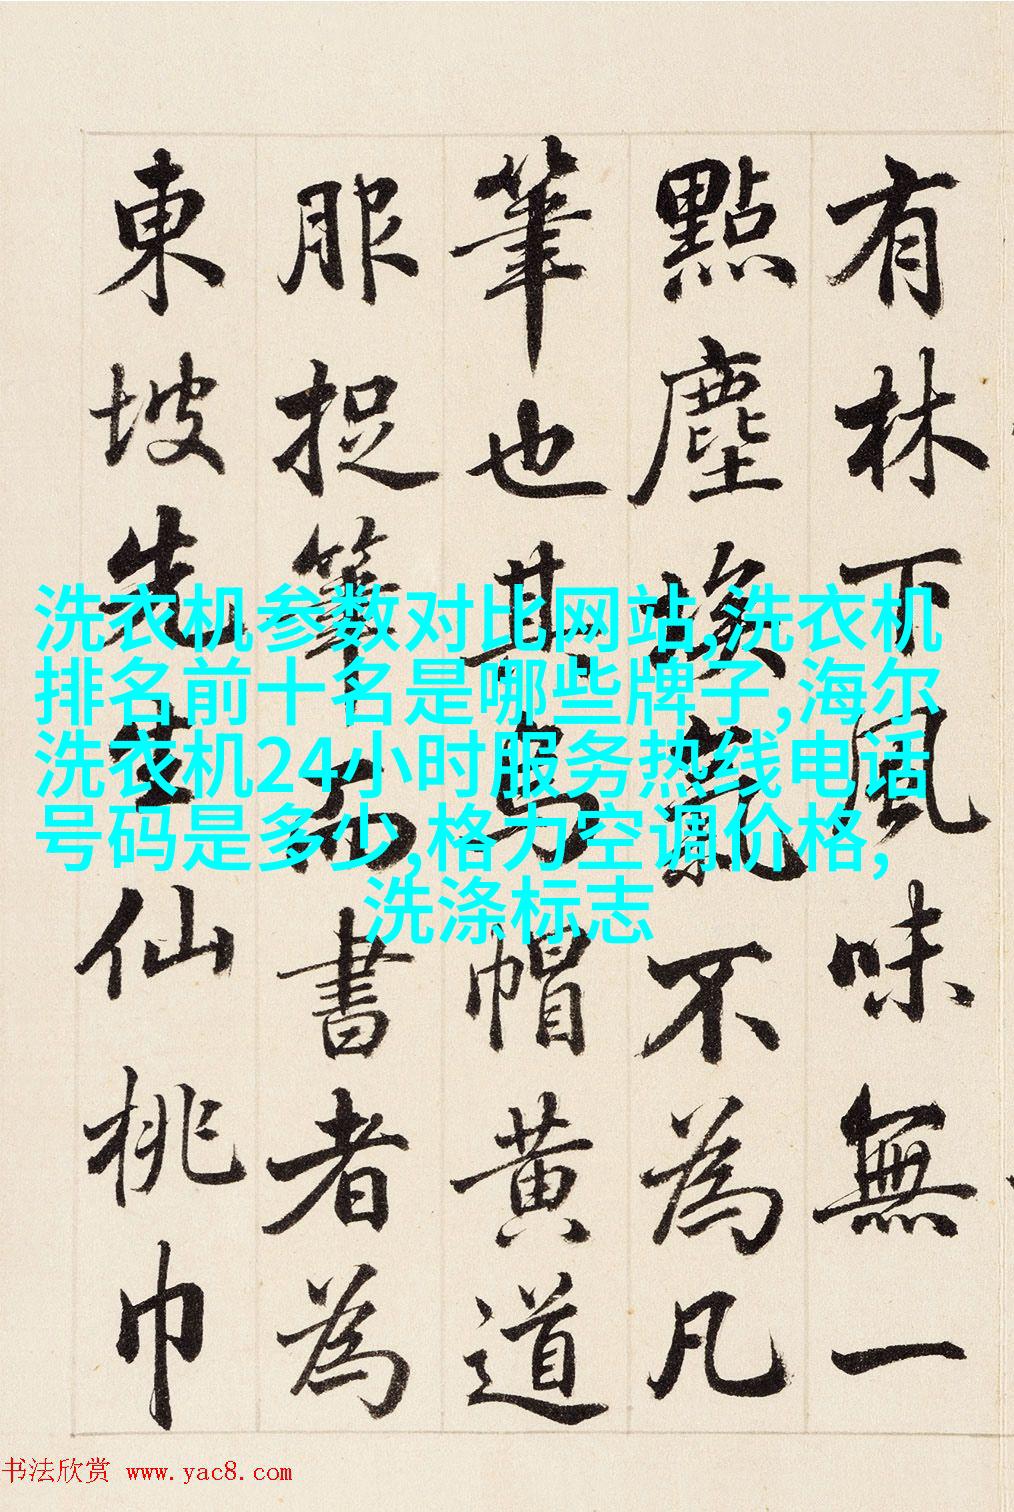 有林下風味無一
點塵埃氣不為凡
筆也其烏帽黃道
服捉筆而書者為
東坡先生仙桃巾
洗衣机参数对比网站,洗衣机
排名前十名是哪些牌子,海尔
洗衣机24小时服务热线电话
号码是多少,格力空调价格,
洗涤标志
书法欣赏 www.yac8.com